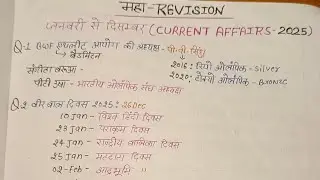 महा-REVISION
जनवरी से दिसम्बर (CURRENT AFFAIRS-2025)
Q.1 BWF एथलीट आयोग की अध्यक्ष - पी.वी. सिंधु
बैडमिंटन
2016: रियो ओलंपिक - Silver
संगीता बरुआ -
2020: टोक्यो ओलंपिक - Bronze
पीटी उषा - भारतीय ओलंपिक संघ अध्यक्ष
Q.2 वीर बाल दिवस 2025: 26 Dec
10 Jan - विश्व हिंदी दिवस
23 Jan - पराक्रम दिवस
24 Jan - राष्ट्रीय बालिका दिवस
25 Jan - मतदाता दिवस
02-Feb - आद्रभूमि "